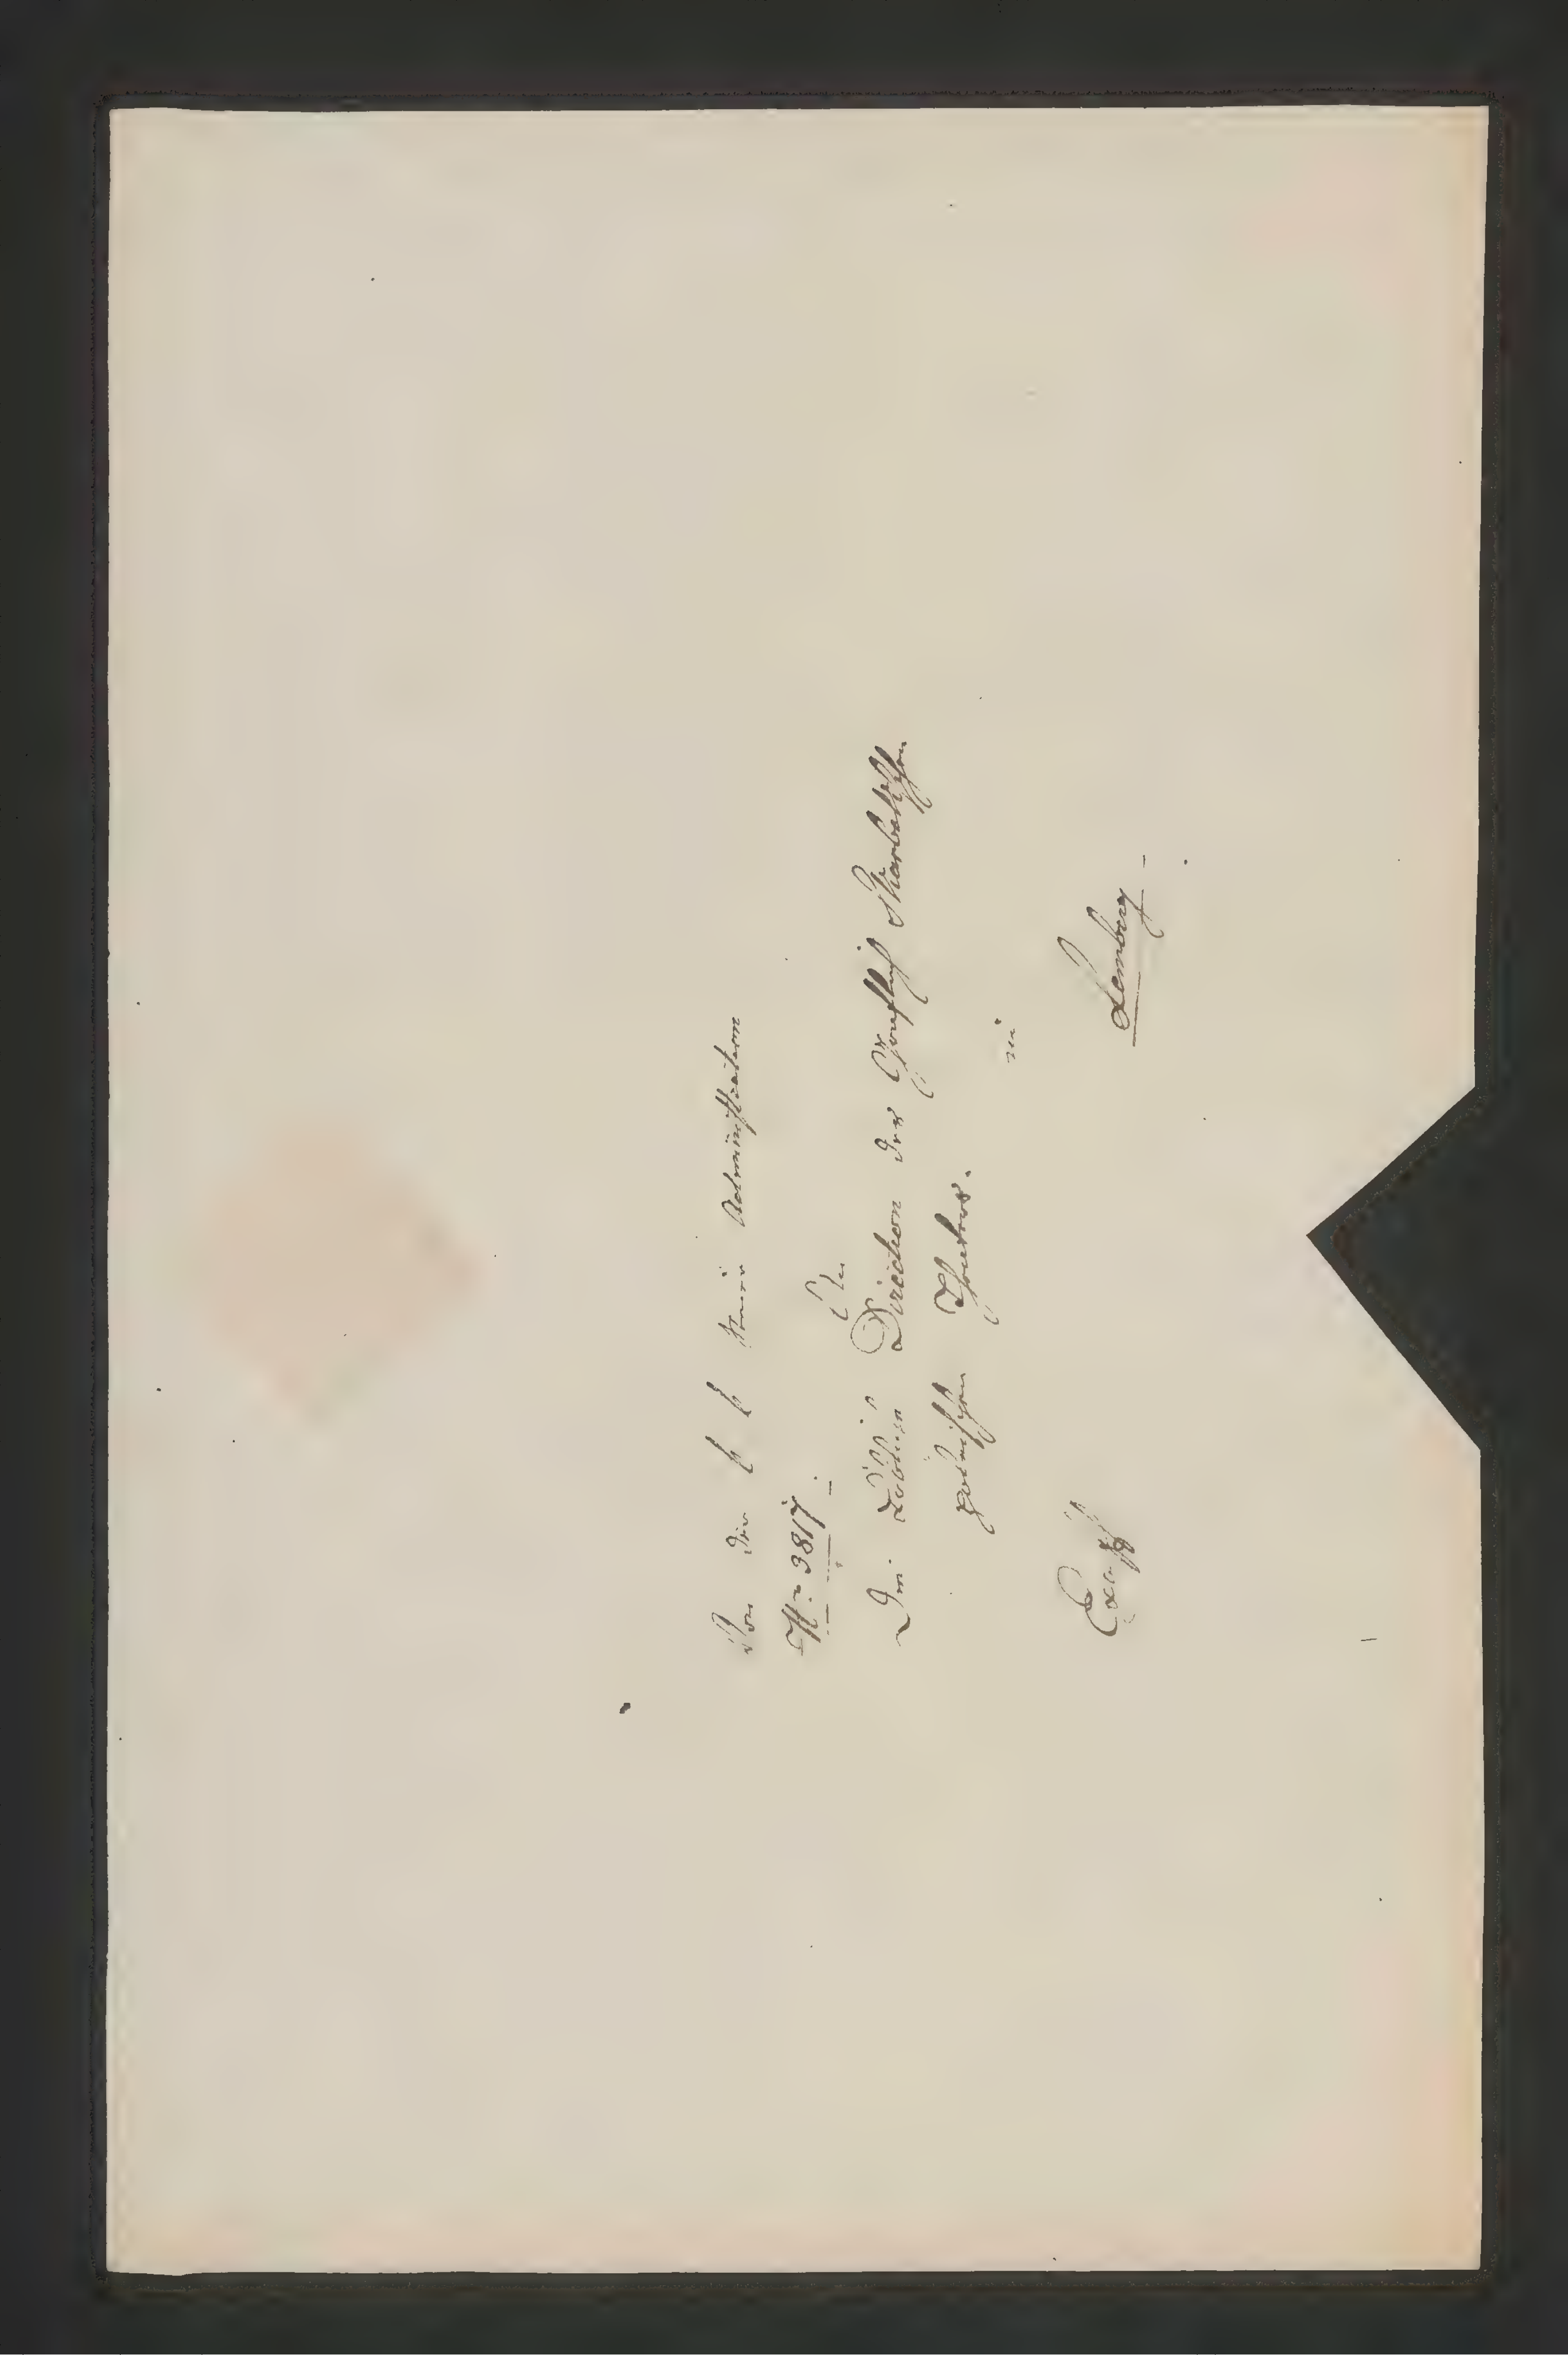 Von der k k Steuer Administration
Nr: 3817.
An
Die Löbliche Direction des Gräflich Skarbekschen
polnischen Theaters.
in
Lemberg